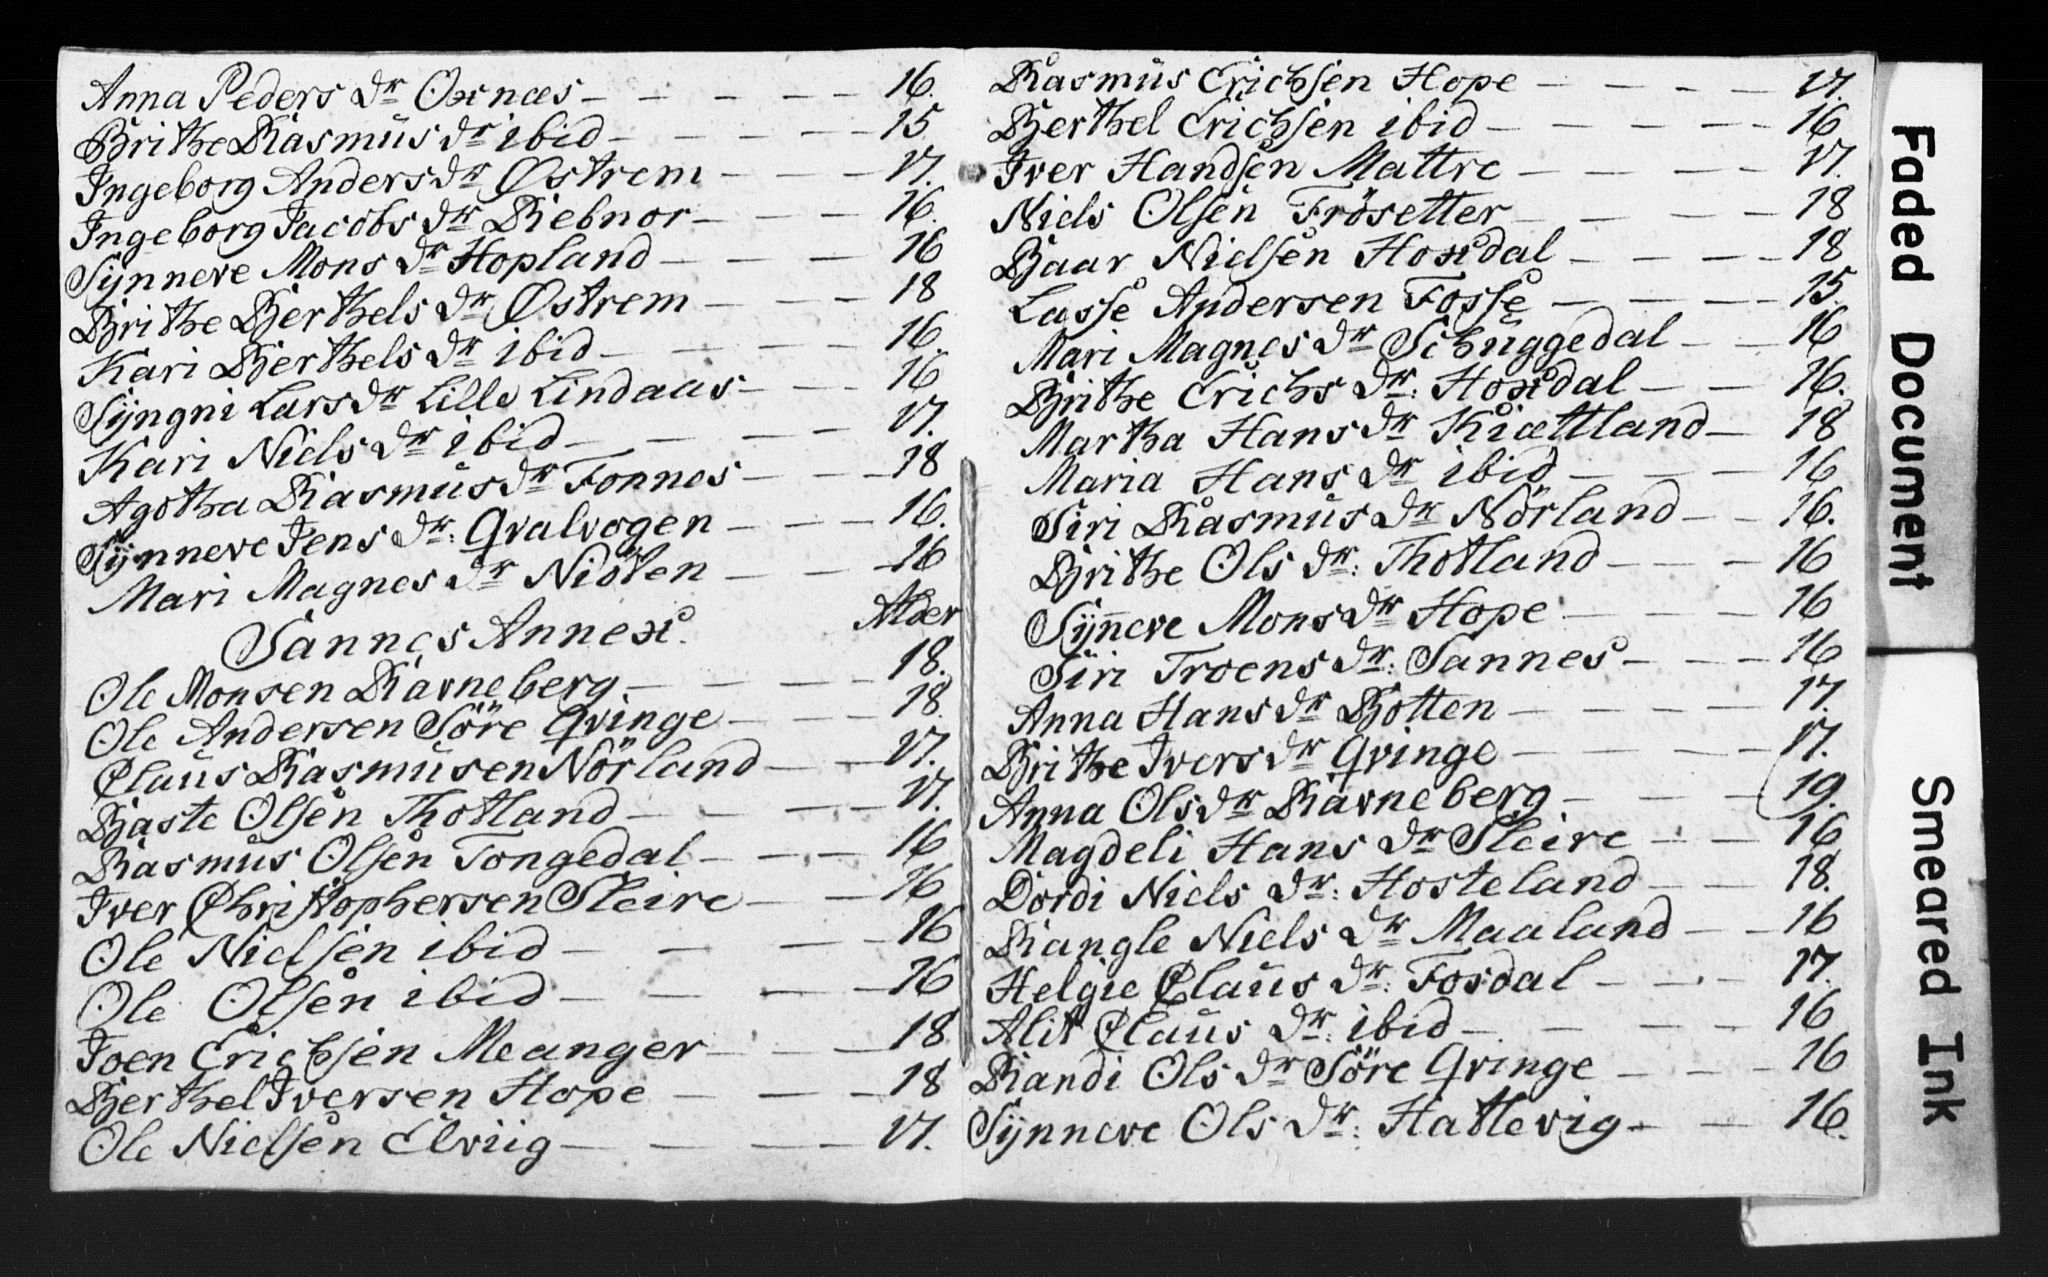 Anna Peders dr Oxnæs - - - - - 16.
Brithe Rasmus dr ibid - - - - - 15
Ingeborg Anders dr Østrem - - - 17.
Ingeborg Jacobs dr Rebnor - - - 16.
Synneve Mons dr Hopland - - - 16
Brithe Berthels dr Østrem - - - 18
Kari Berthels dr ibid - - - - 16.
Syngni Lars dr Lille Lindaas - - - 16
Kari Niels dr ibid - - - - 17.
Agotha Rasmus dr Fonnes - - - 18
Synneve Jens dr: Qvalvogen - - - 16.
Mari Magnes dr Nioten - - - 16
Sannes Annex. Alder
Ole Monsen Ravneberg - - - - 18.
Ole Andersen Söre Qvinge - - - 18
Claus Rasmusen Nörland - - 17.
Baste Olsen Thotland - - - 17.
Rasmus Olsen Tongedal - - - 16
Iver Christophersen Sleire - - - 16
Ole Nielsen ibid - - - - 16
Ole Olsen ibid - - - - - 16
Joen Erichsen Meanger - - - 18
Berthel Iversen Hope - - - 18
Ole Nielsen Elviig - - - - 17.
Rasmus Erichsen Hope - - - - - 17.
Berthel Erichsen ibid - - - - - 16
Iver Handsen Mattre - - - - 17.
Niels Olsen Frösetter - - - - 18
Baar Nielsen Hoxdal - - - - 18
Lasse Andersen Fosse - - - - 15
Mari Magnes dr Schuggedal - - 16
Brithe Erichs dr: Hoxdal - - - 16.
Martha Hans dr Kiættland - - 18
Maria Hans dr ibid - - - - 16
Siri Rasmus dr Nörland - - 16.
Brithe Ols dr: Thotland - - - 16
Syneve Mons dr Hope - - - - 16
Siri Troens dr: Sannes - - - 16
Anna Hans dr Botten - - - - 17.
Brithe Ivers dr Qvinge - - - - 17.
Anna Ols dr Ravneberg - - - 19.
Magdeli Hans dr Sleire - - - 16
Dordi Niels dr: Hosteland - - - 18.
Rangle Niels dr Maaland - - 16
Helgie Claus dr: Fosdal - - - 17.
Alit Claus dr: ibid - - - - - 16
Randi Ols dr Söre Qvinge - - - 16
Synneve Ols dr: Hatlevig - - - 16.
Faded Document
Smeared Ink